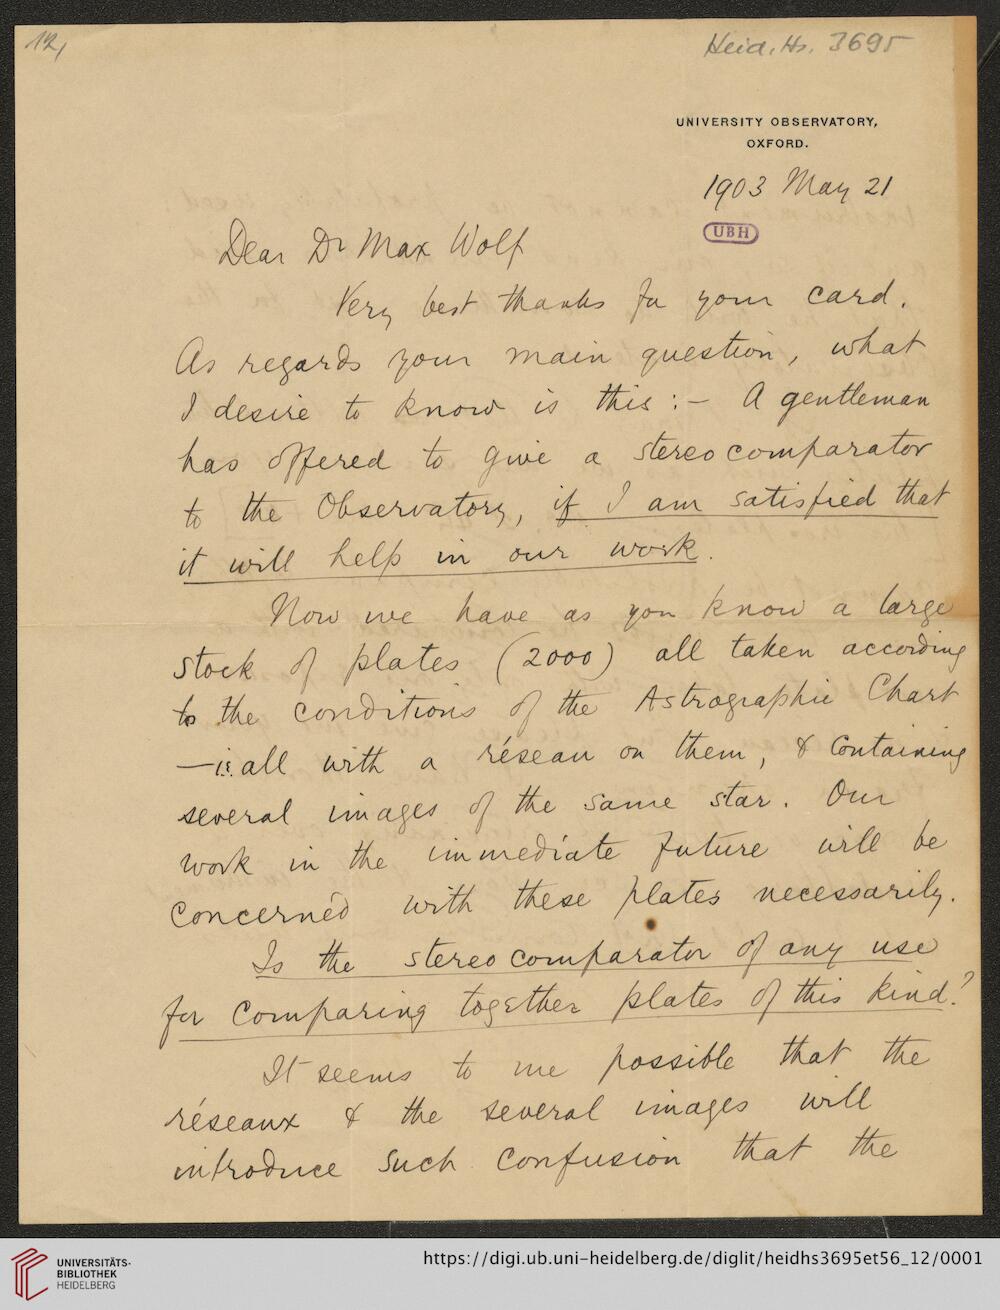 12,
Heid. Hs. 3695
UNIVERSITY OBSERVATORY,
OXFORD.
1903 May 21
UBH
Dear Dr Max Wolf
Very best thanks for your card.
As regards your main question, what
I desire to know is this :– A gentleman
has offered to give a stereocomparator
to the Observatory, if I am satisfied that
it will help in our work.
Now we have as you know a large
stock of plates (2000) all taken according
to the conditions of the Astrographic Chart
— i.e. all with a réseau on them, & containing
several images of the same star. Our
work in the immediate future will be
concerned with these plates necessarily.
Is the stereocomparator of any use
for comparing together plates of this kind?
It seems to me possible that the
réseaux & the several images will
introduce such confusion that the
UNIVERSITÄTS-
BIBLIOTHEK
HEIDELBERG
https://digi.ub.uni-heidelberg.de/diglit/heidhs3695et56_12/0001